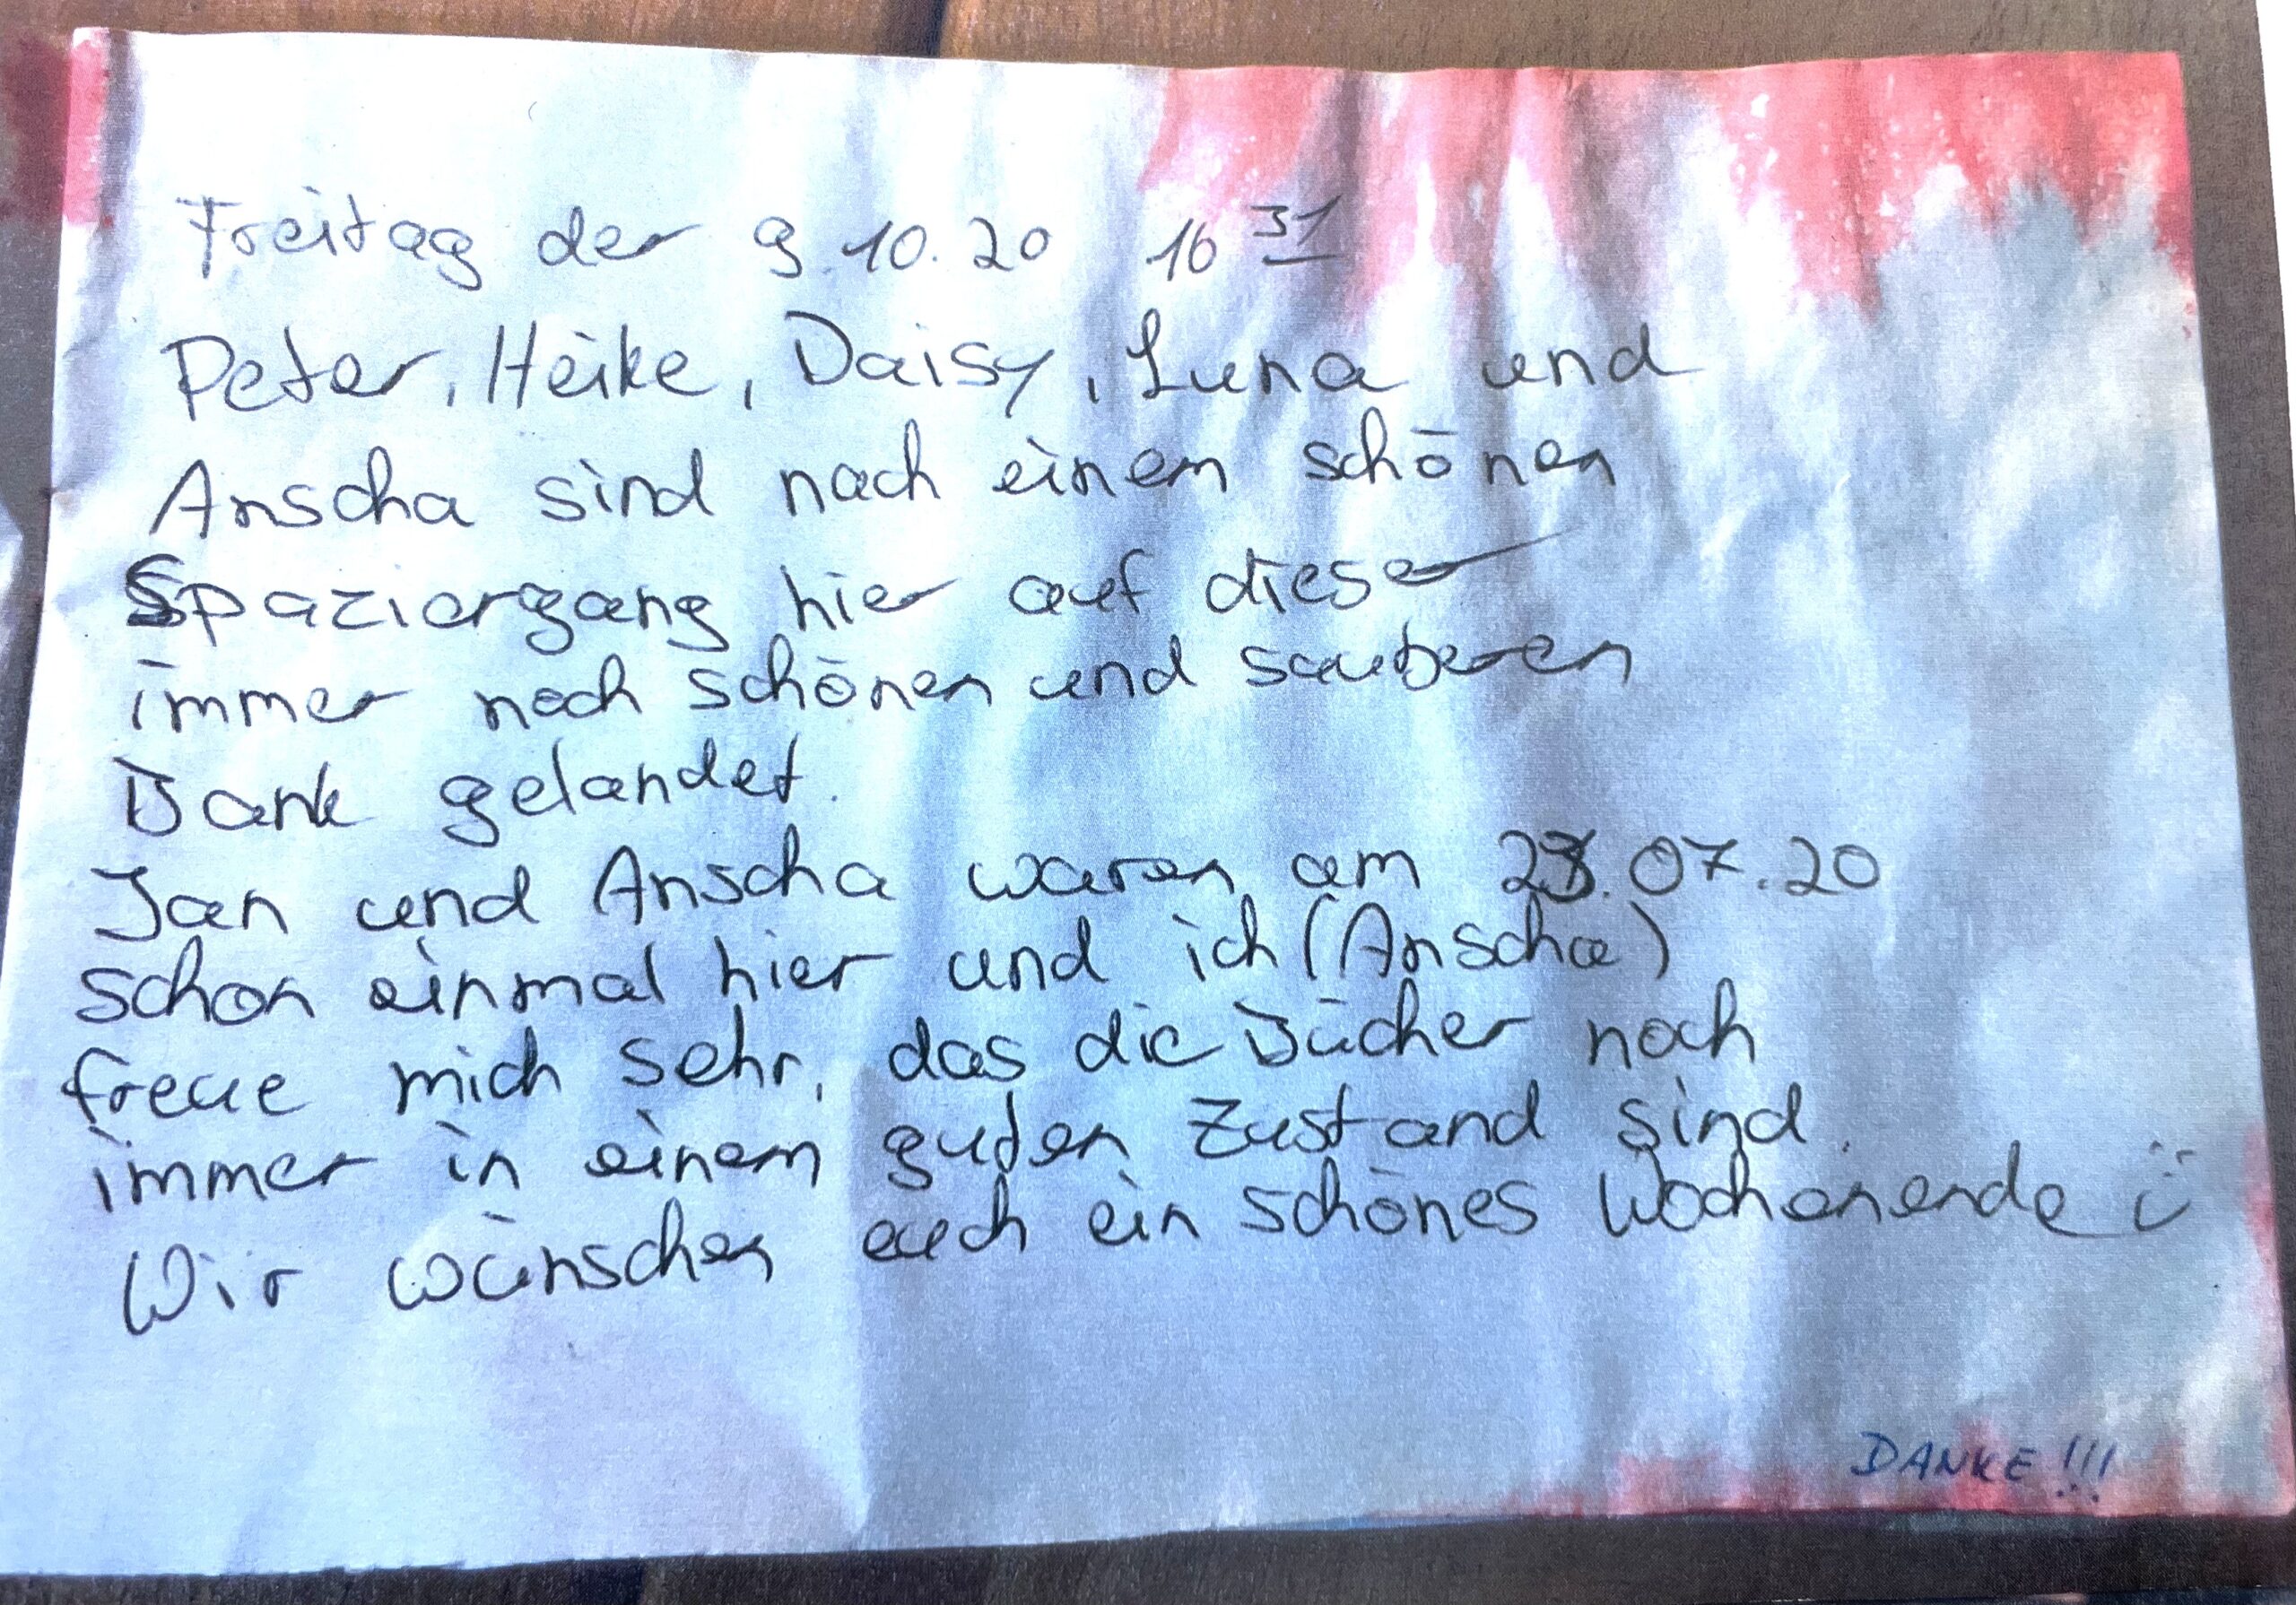 Freitag der 9.10.20 16 31
Peter, Heike, Daisy, Luna und
Anscha sind nach einem schönen
Spaziergang hier auf dieser
immer noch schönen und sauberen
Bank gelandet.
Jan und Anscha waren am .07.20
schon einmal hier und ich (Anscha)
freue mich sehr, das die Bücher noch
immer in einem guten Zustand sind.
Wir wünschen euch ein schönes Wochenende :)
DANKE!!!